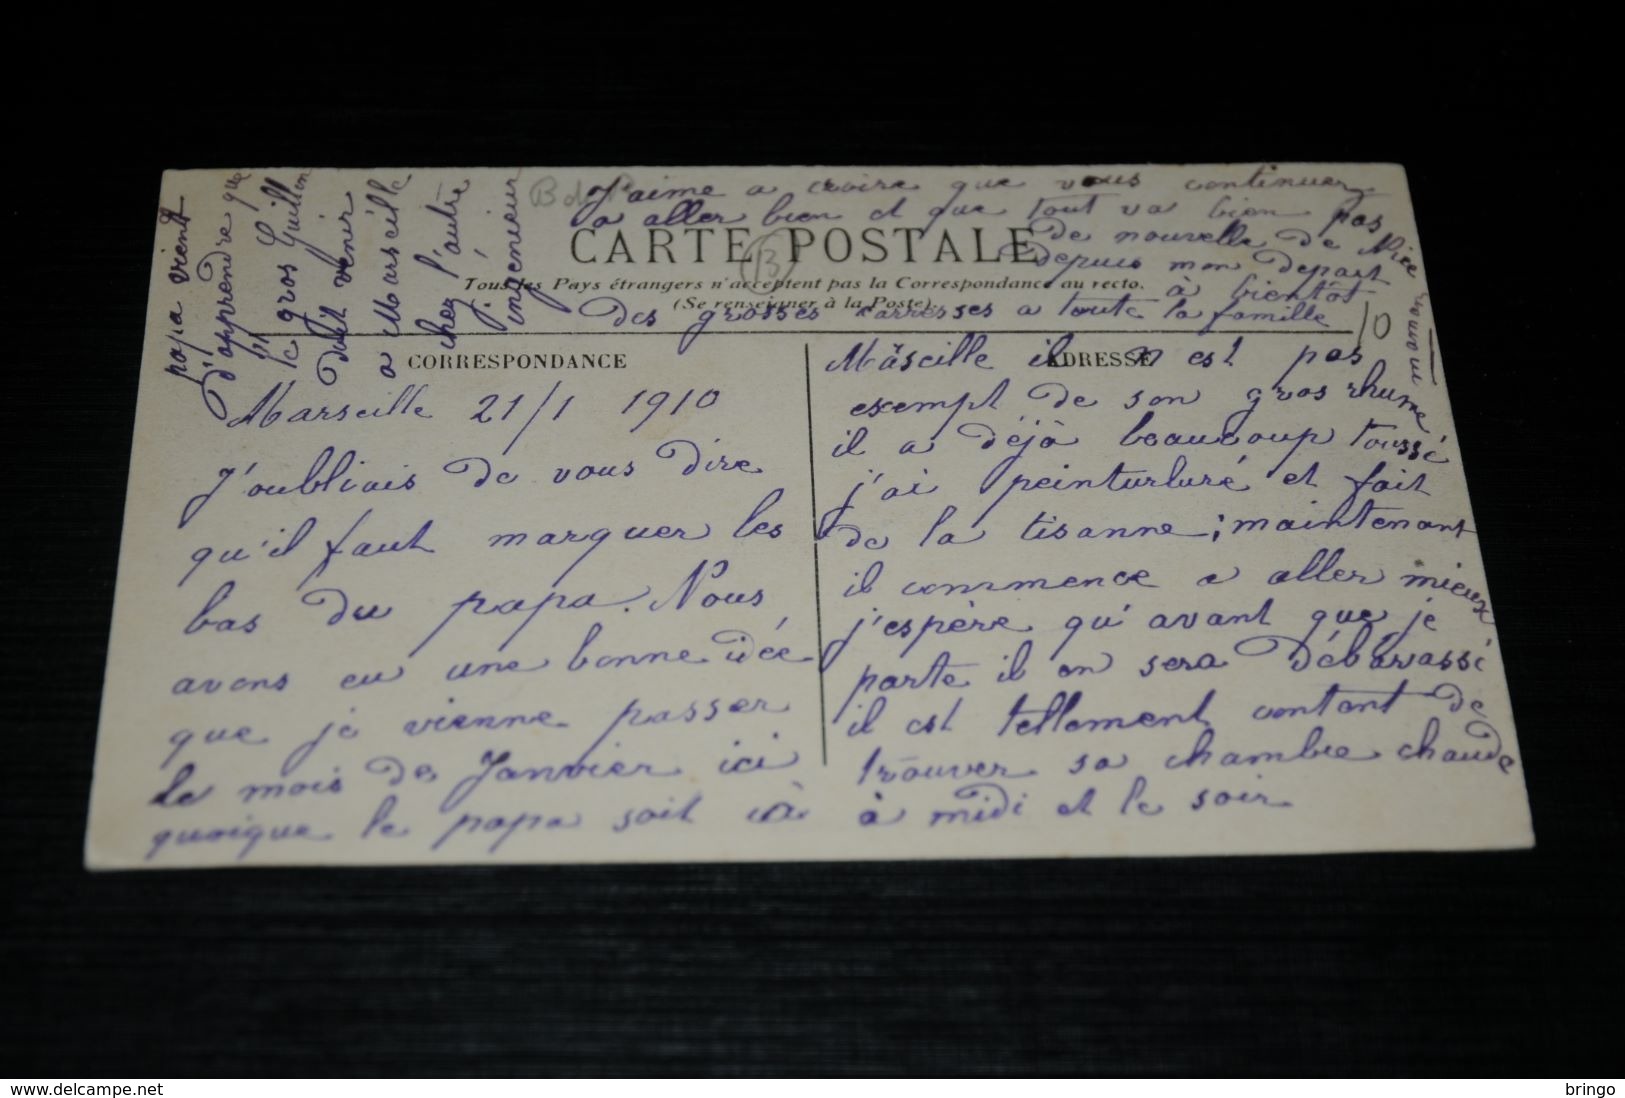 papa vient
d'apprendre que
le gros Guillon
doit venir
a Marseille
chez l'autre
ingenieur
B d R
J'aime a croire que vous continuez
a aller bien et que tout va bien pas
de nouvelle de Nice
depuis mon depart
à bientôt
des grosses carresses a toute la famille
maman
CARTE POSTALE
13
Tous les Pays étrangers n'acceptent pas la Correspondance au recto.
(Se renseigner à la Poste).
10
CORRESPONDANCE
ADRESSE
Marseille 21/1 1910
J'oubliais de vous dire
qu'il faut marquer les
bas du papa. Nous
avons eu une bonne idée
que je vienne passer
le mois de Janvier ici
quoique le papa soit à
Marseille il n est pas
exempt de son gros rhume
il a déjà beaucoup toussé
j'ai peinturluré et fait
de la tisanne; maintenant
il commence a aller mieux
j'espère qu'avant que je
parte il en sera débarassé
il est tellement contant de
trouver sa chambre chaude
à midi et le soir
© www.delcampe.net
bringo